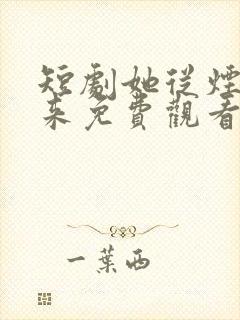 短劇她從煙
來免費觀看
一葉西